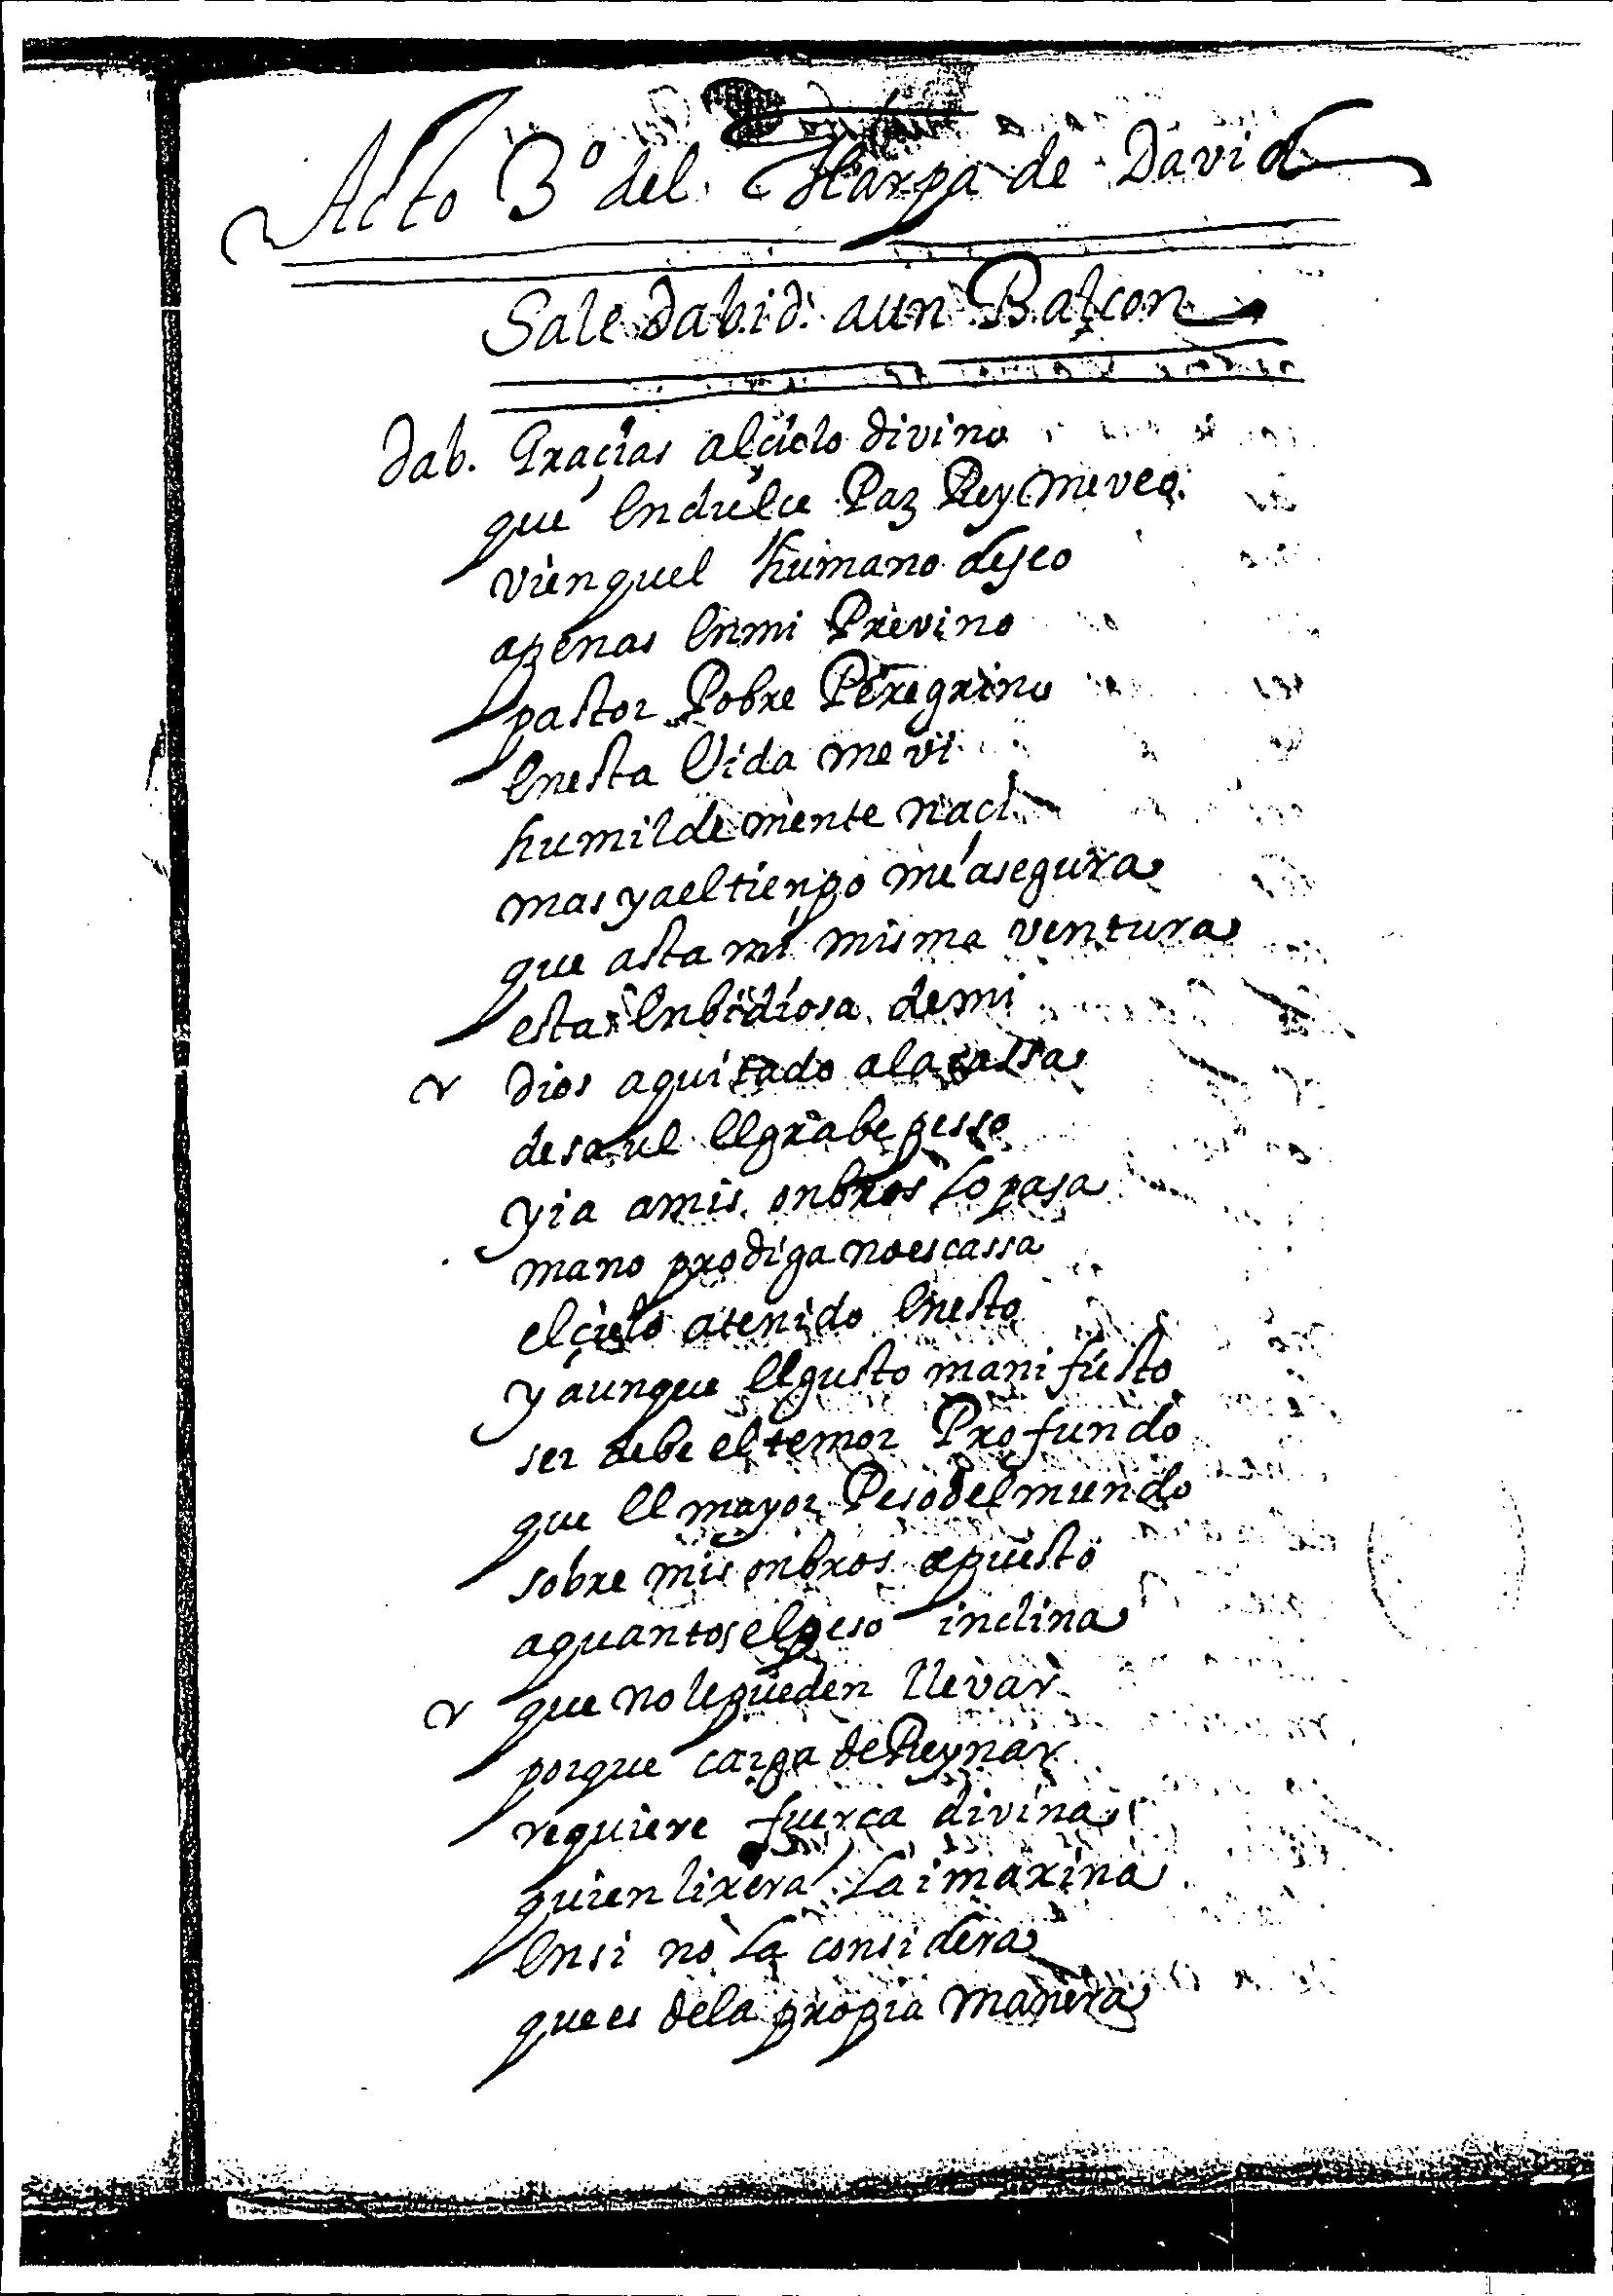 Acto 3º del Harpa de David
Sale dabid aun Balcon
dab. Graçias alçielo divino
que en dulce Paz Rey me veo
vien quel humano deseo
apenas en mi Previno
pastor Pobre Peregrino
en esta vida me vi
humilde mente naci
mas ya el tienpo me asegura
que asta mi misma ventura
esta enbidiosa de mi
dios a quitado a la cassa
de saul el grabe pesso
y ia a mis onbros lo pasa
mano prodiga no escassa
el çielo a tenido en esto
y aunque el gusto manifiesto
ser debe el temor Profundo
que el mayor Peso del mundo
sobre mis onbros a puesto
a quantos el peso inclina
que no le pueden llevar
porque carga de Reynar
requiere fuerça divina
quien lixera la imaxina
en si no la considera
que es de la propia manera